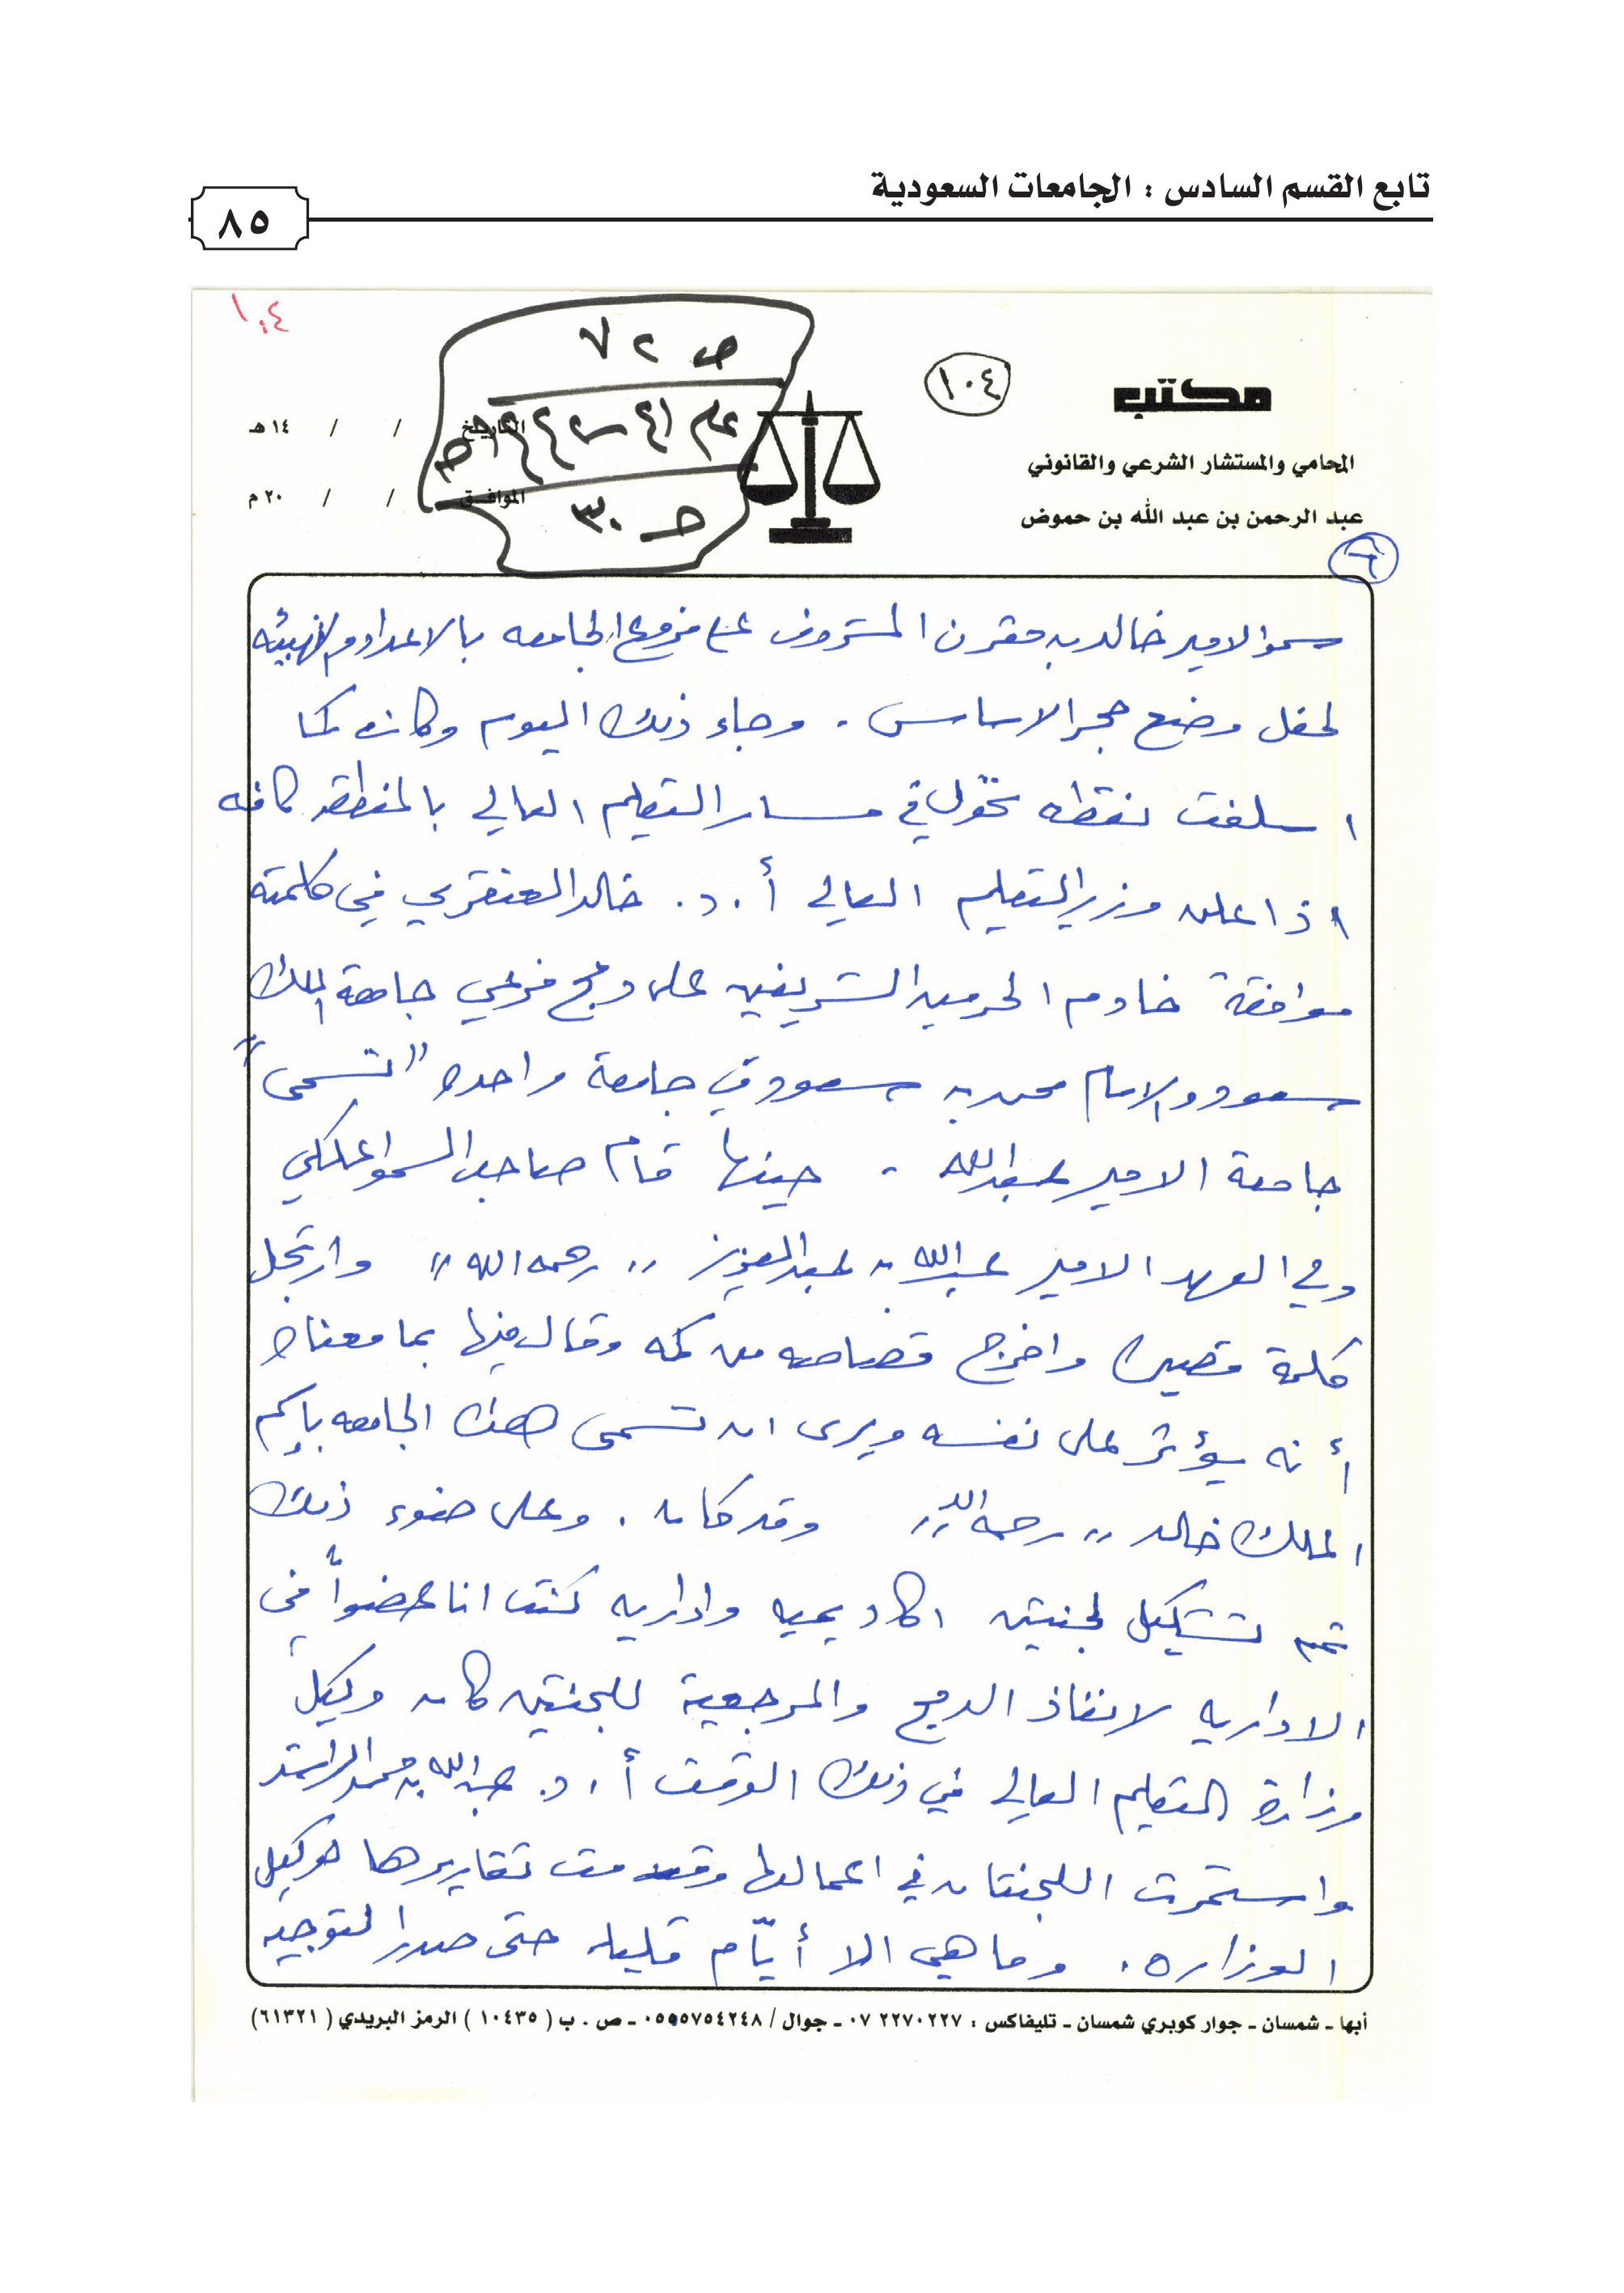 تابع القسم السادس : الجامعات السعودية
٨٥
١٠٤
ص ٧٢
عام ١٤٢١-١٤٤٢هـ
ح ٣٠
١٠٤
مكتب
المحامي والمستشار الشرعي والقانوني
عبد الرحمن بن عبد الله بن حموض
التاريخ / / ١٤هـ
الموافق / / ٢٠م
٦
سمو الامير خالد بن مقرن المشرف على فروع الجامعه بالاعداد والتهيئه
لحفل وضع حجر الاساس . وجاء ذلك اليوم وكانت كما
اسلفت نقطه تحوّل في مسار التعليم العالي بالمنطقه كافه
اذا علن وزير التعليم العالي أ.د. خالد العنقري في كلمته
موافقة خادم الحرمين الشريفين على دمج فرعي جامعة الملك
سعود والامام محمد بن سعود في جامعة واحده "تسمى"
جامعة الامير عبدالله . حينها قام صاحب السمو الملكي
ولي العهد الامير عبدالله بن عبدالعزيز "رحمه الله" وارتجل
كلمة قصيره واخرج قصاصه من كمه وقال فيها بما معناه
أنه يؤثر على نفسه ويرى ان تسمى هذه الجامعه باسم
الملك خالد "رحمه الله" وقد كان . وعلى ضوء ذلك
تم تشكيل لجنتين اكاديميه واداريه كنت انا عضواً في
الاداريه لانفاذ الدمج والمرجعية للجنتين كان وكيل
وزارة التعليم العالي في ذلك الوقت أ.د. عبدالله بن محمد الراشد
واستمرت اللجنتان في اعمالها وقدمت تقاريرها لوكيل
الوزاره . وما هي الا أيّام قليله حتى صدر التوجيه
أبها ـ شمسان ـ جوار كوبري شمسان ـ تليفاكس : ٢٢٧٠٢٢٧ ٠٧ ـ جوال / ٠٥٥٥٧٥٤٢٤٨ ـ ص . ب ( ١٠٤٣٥ ) الرمز البريدي ( ٦١٣٢١ )